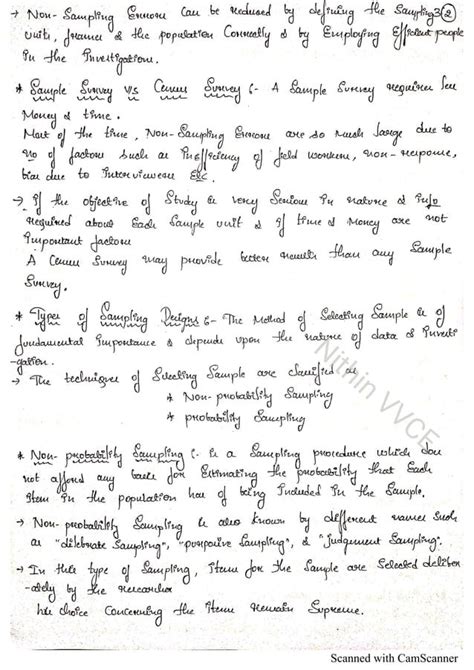 → Non-Sampling Errors can be reduced by defining the Sampling 32
units, frame & the population Correctly & by Employing Efficient people
in the Investigation.
* Sample Survey v/s Census Survey :- A Sample Survey requires less
Money & time.
Most of the time, Non-Sampling Errors are so much large due to
no of factors such as Inefficiency of field workers, non-response,
bias due to Interviewers Etc.
→ If the objective of Study is very Serious in nature & info
required about Each Sample unit & if time & Money are not
Important factors
A Census Survey may provide better results than any Sample
Survey.
* Types of Sampling Designs :- The Method of Selecting Sample is of
fundamental Importance & depends upon the nature of data & Investi
-gation.
→ The techniques of Selecting Sample are classified as
* Non-probability Sampling
* probability Sampling
Nithin VVCE
* Non-probability Sampling :- is a Sampling procedure which does
not afford any basis for Estimating the probability that Each
Item in the population has of being Included in the Sample.
→ Non-probability Sampling is also known by different names such
as "dilebrate Sampling", "purposive Sampling", & "Judgement Sampling".
→ In this type of Sampling, Items for the Sample are Selected deliber
-ately by the researcher
his choice Concerning the Items Remain Supreme.
Scanned with CamScanner